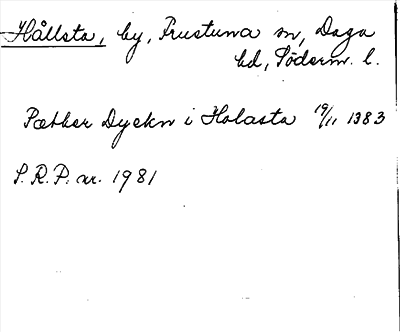 Hållsta, by, Frustuna sn, Daga
hd, Söderm. l.
Pæther Dyekn i Holasta 19/11 1383
S.R.P. nr. 1981